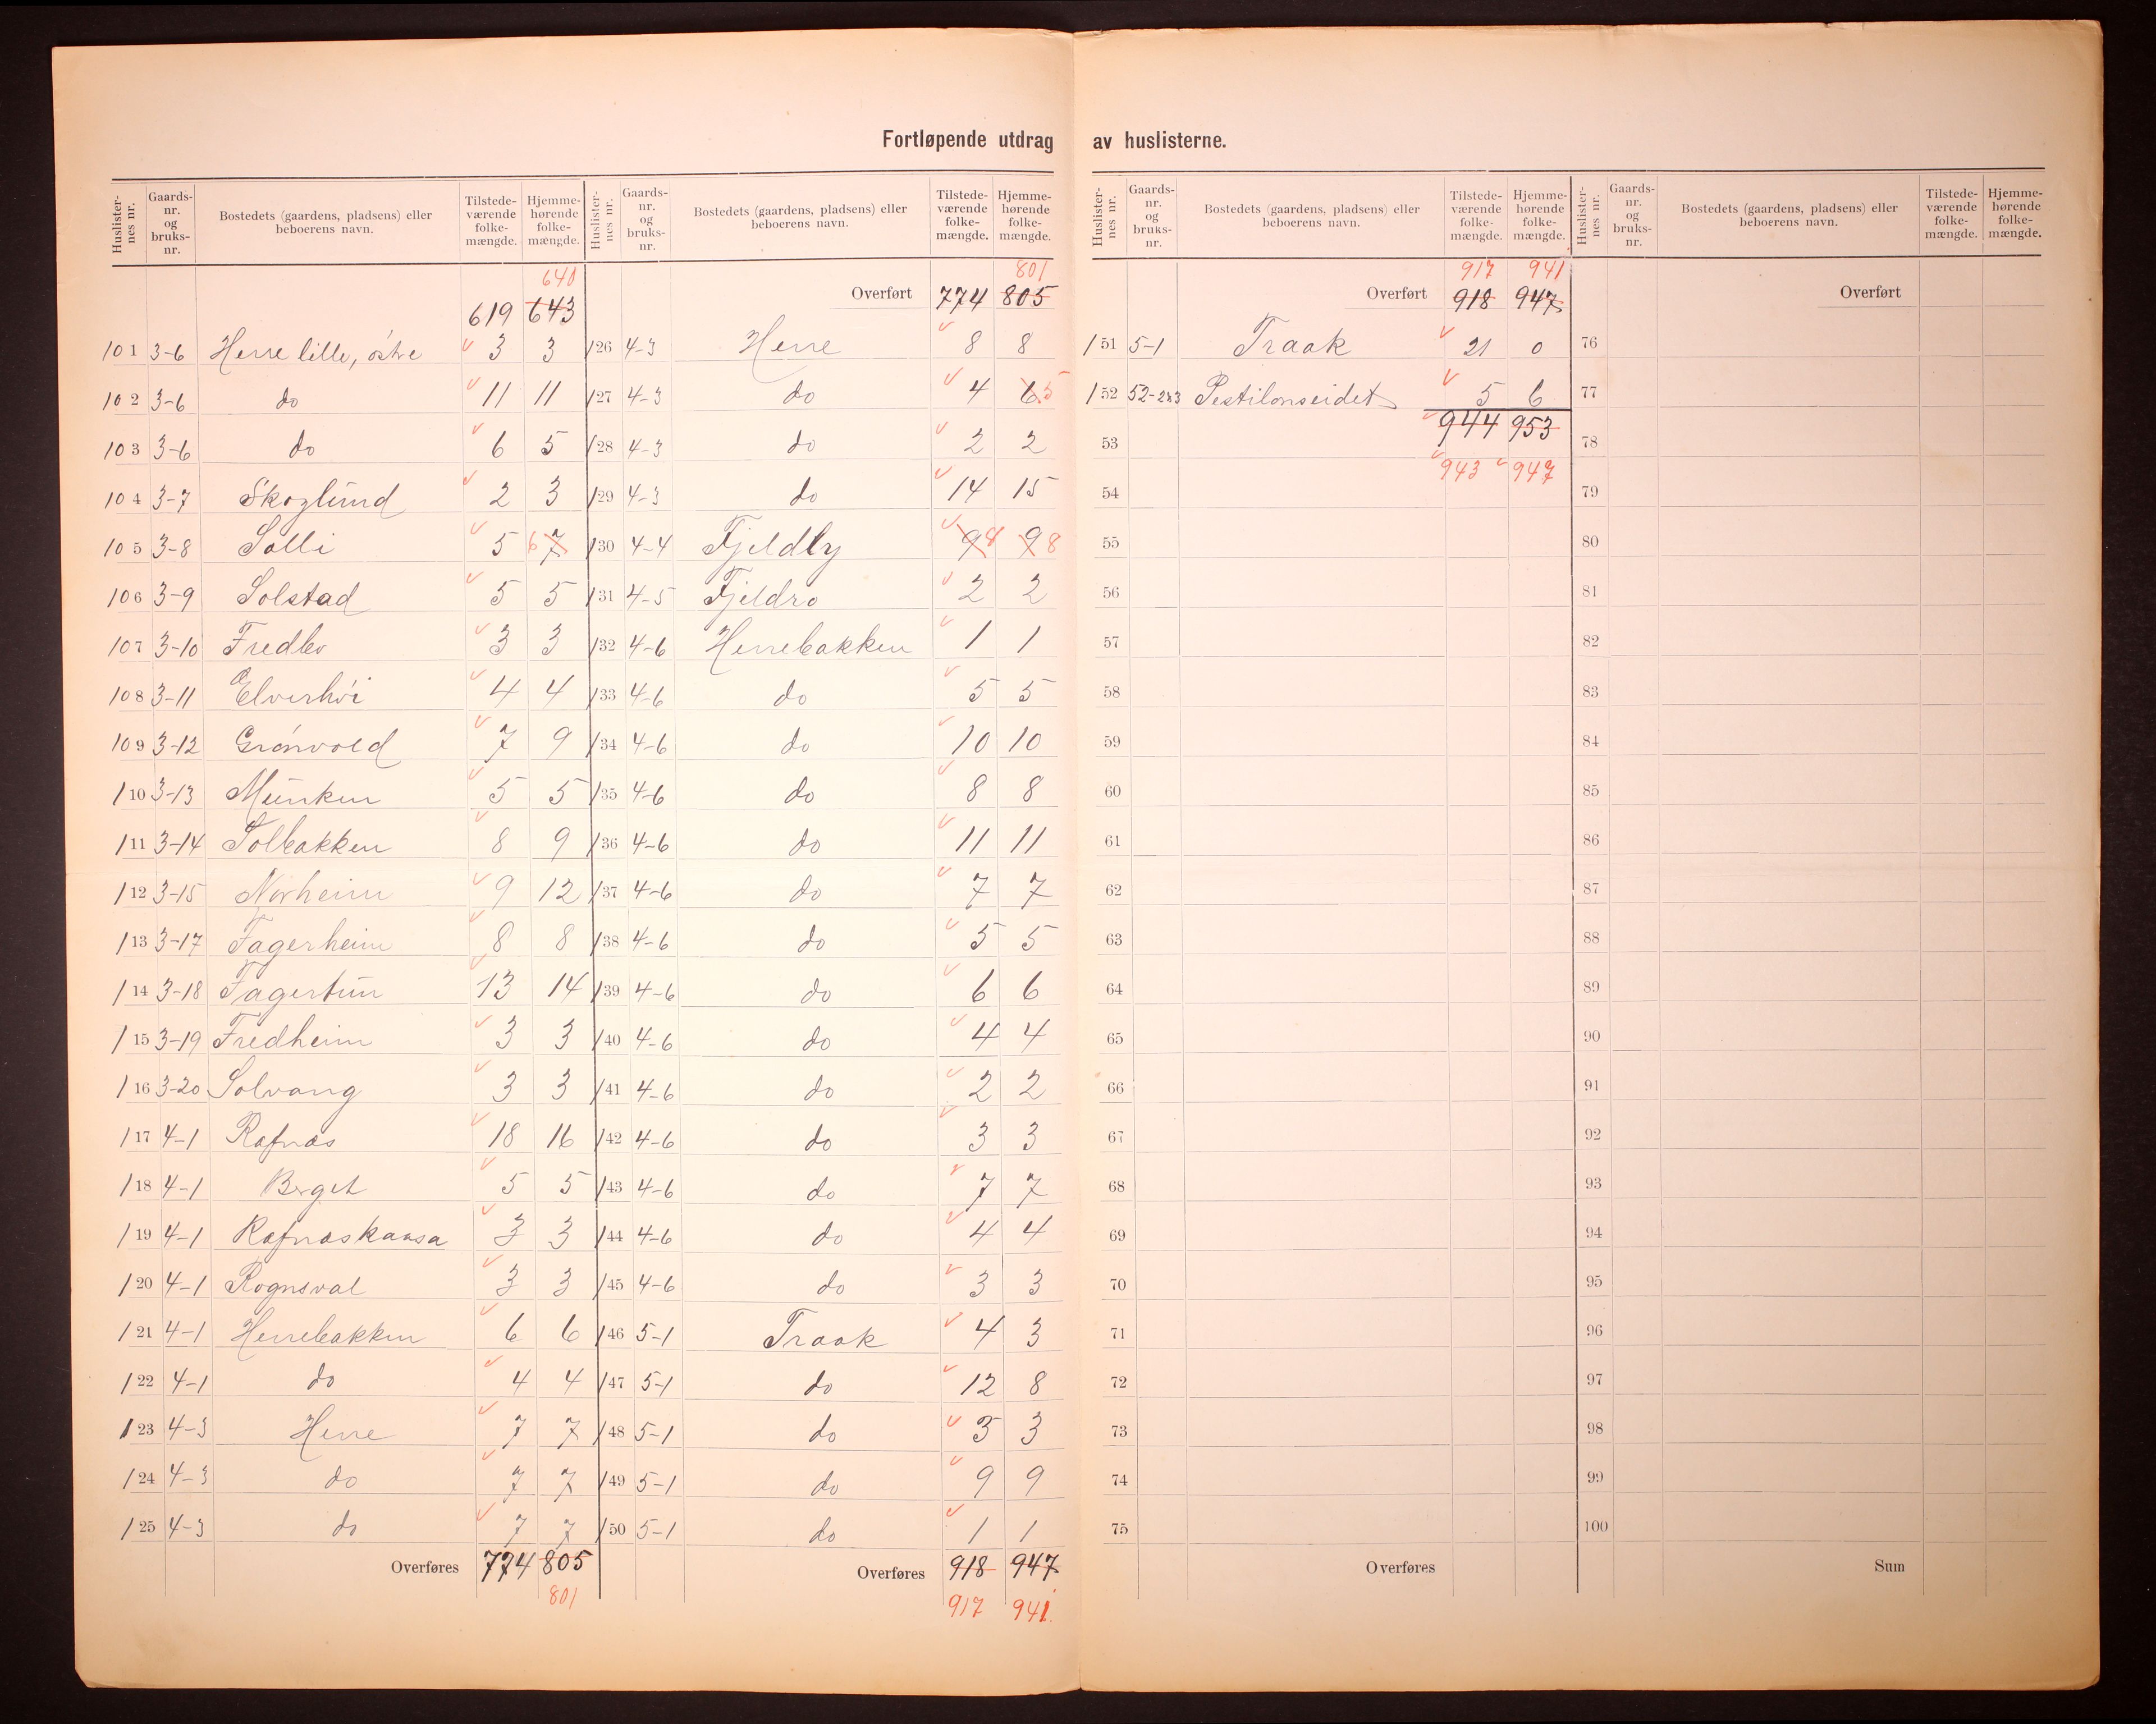 Fortløpende utdrag av huslisterne.
Huslister-nes nr. | Gaards-nr. og bruks-nr. | Bostedets (gaardens, pladsens) eller beboerens navn. | Tilstede-værende folke-mængde. | Hjemme-hørende folke-mængde.
640
619 643
101 3-6 Herre lille, østre 3 3
102 3-6 do 11 11
103 3-6 do 6 5
104 3-7 Skoglund 2 3
105 3-8 Solli 5 6 7
106 3-9 Solstad 5 5
107 3-10 Fredbo 3 3
108 3-11 Elverhöi 4 4
109 3-12 Grönvold 7 9
110 3-13 Munken 5 5
111 3-14 Solbakken 8 9
112 3-15 Norheim 9 12
113 3-17 Fagerheim 8 8
114 3-18 Fagertun 13 14
115 3-19 Fredheim 3 3
116 3-20 Solvang 3 3
117 4-1 Rafnas 18 16
118 4-1 Berget 5 5
119 4-1 Rafnaskaasa 3 3
120 4-1 Rognsval 3 3
121 4-1 Herrebakken 6 6
122 4-1 do 4 4
123 4-3 Herre 7 7
124 4-3 do 7 7
125 4-3 do 7 7
Overføres 774 805
801
Huslister-nes nr. | Gaards-nr. og bruks-nr. | Bostedets (gaardens, pladsens) eller beboerens navn. | Tilstede-værende folke-mængde. | Hjemme-hørende folke-mængde.
801
Overført 774 805
126 4-3 Herre 8 8
127 4-3 do 4 6 5
128 4-3 do 2 2
129 4-3 do 14 15
130 4-4 Fjeldly 9 8 9 8
131 4-5 Fjeldro 2 2
132 4-6 Herrebakken 1 1
133 4-6 do 5 5
134 4-6 do 10 10
135 4-6 do 8 8
136 4-6 do 11 11
137 4-6 do 7 7
138 4-6 do 5 5
139 4-6 do 6 6
140 4-6 do 4 4
141 4-6 do 2 2
142 4-6 do 3 3
143 4-6 do 7 7
144 4-6 do 4 4
145 4-6 do 3 3
146 5-1 Traak 4 3
147 5-1 do 12 8
148 5-1 do 3 3
149 5-1 do 9 9
150 5-1 do 1 1
Overføres 918 947
917 941.
Huslister-nes nr. | Gaards-nr. og bruks-nr. | Bostedets (gaardens, pladsens) eller beboerens navn. | Tilstede-værende folke-mængde. | Hjemme-hørende folke-mængde.
917 941
Overført 918 947
151 5-1 Traak 21 0
152 52-2&3 Pestilonseidet 5 6
944 953
53
943 947
54
55
56
57
58
59
60
61
62
63
64
65
66
67
68
69
70
71
72
73
74
75
Overføres
Huslister-nes nr. | Gaards-nr. og bruks-nr. | Bostedets (gaardens, pladsens) eller beboerens navn. | Tilstede-værende folke-mængde. | Hjemme-hørende folke-mængde.
Overført
76
77
78
79
80
81
82
83
84
85
86
87
88
89
90
91
92
93
94
95
96
97
98
99
100
Sum